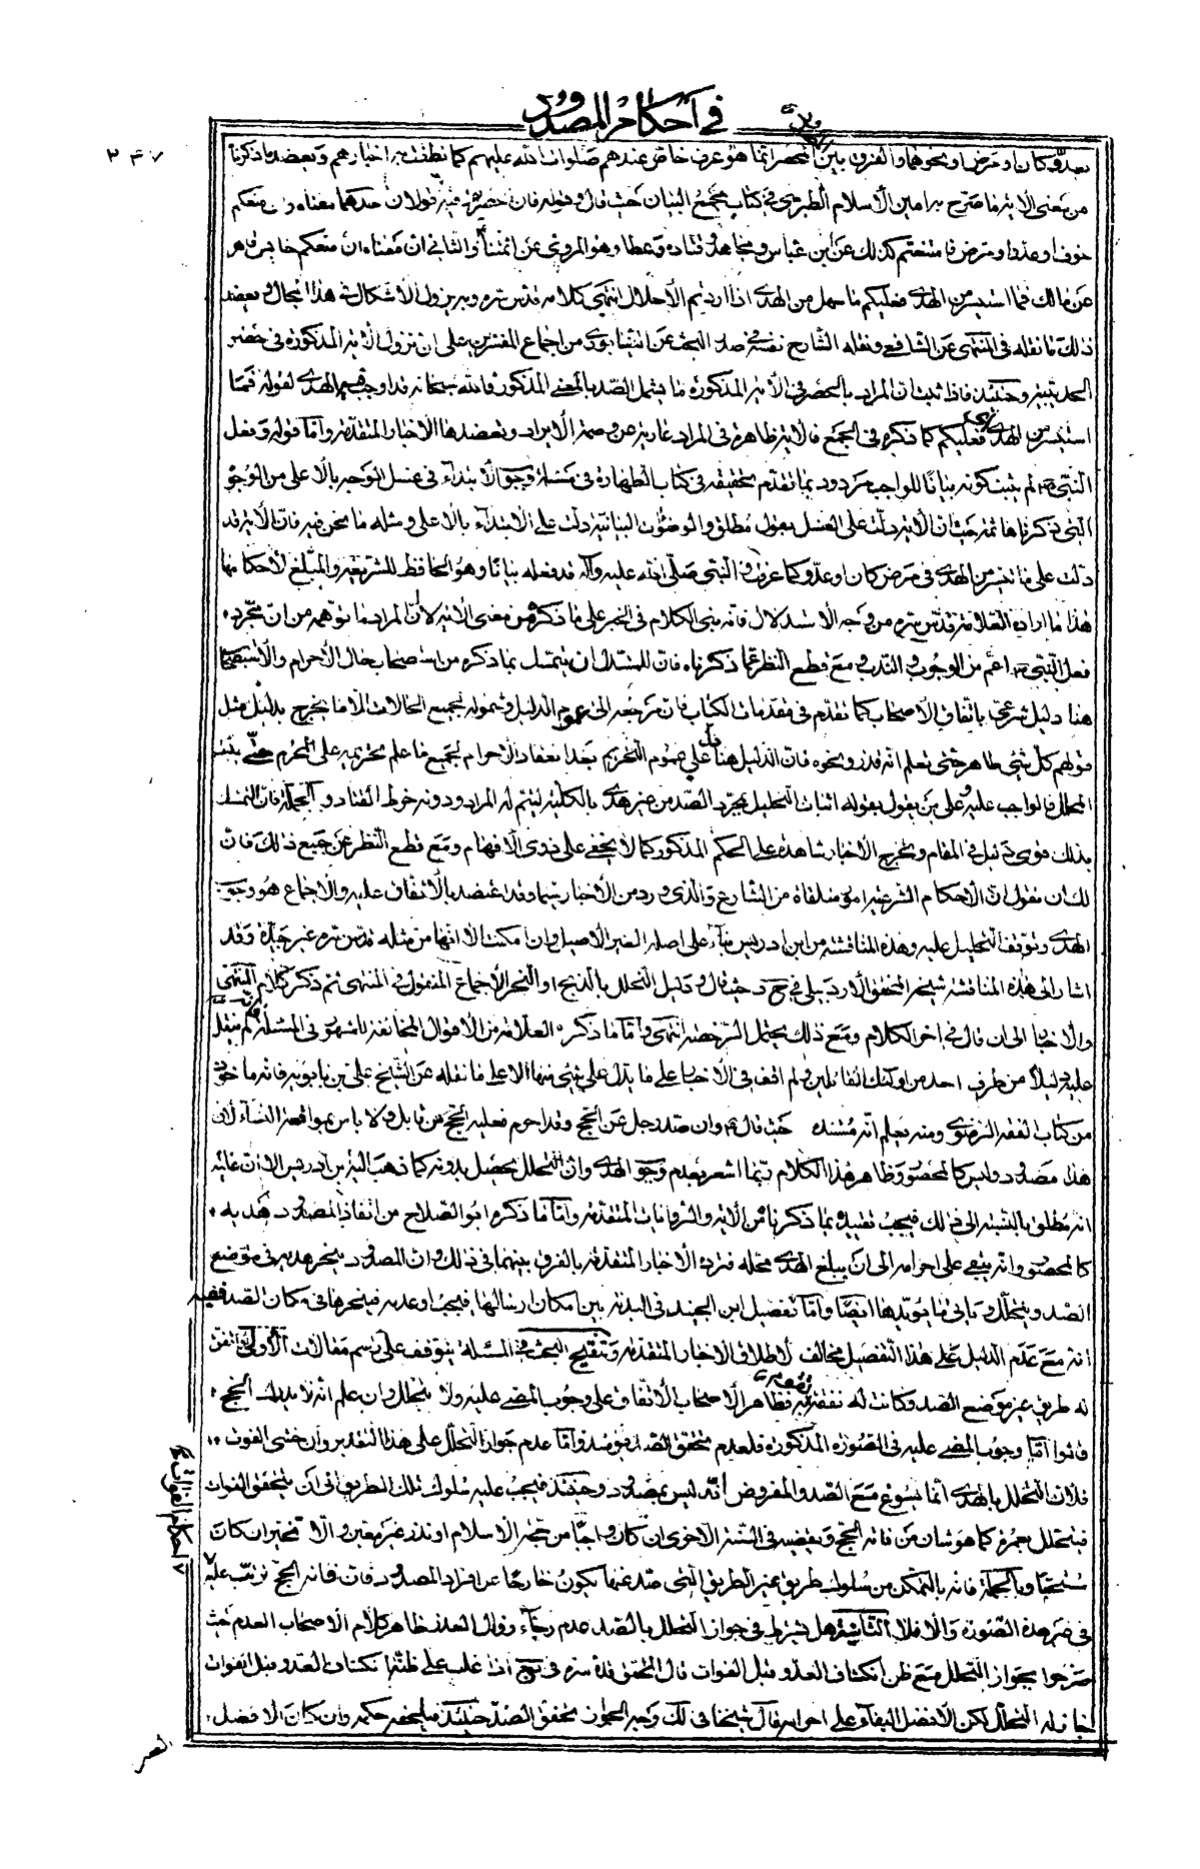 في أحكام المصدود
٣٤٧
بعدو كان او مرض او نحوهما والفرق بين الحصر انما هو عرف خاص عندهم صلوات الله عليهم كما نطقت به اخبارهم ويعضد ما ذكرنا
من معنى الآية ما صرح به امين الاسلام الطبرسي في كتاب مجمع البيان حيث قال في قوله فان احصرتم فيه قولان احدهما معناه ان منعكم
خوف او عدو او مرض فامتنعتم كذلك عن ابن عباس ومجاهد وقتادة وعطا وهو المروي عن ائمتنا والثاني ان معناه ان منعكم حابس قاهر
عن مالك فما استيسر من الهدي فعليكم ما سهل من الهدي اذا اردتم الاحلال انتهى كلامه قدس سره وبه يزول الاشكال في هذا المجال ويعضد
ذلك ما نقله في المنتهى عن الشافعي ونقله الشارح نفسه في صدر البحث عن النيشابوري من اجماع المفسرين على ان نزول الآية المذكورة في حصر
الحديبية وحينئذ فاذا ثبت ان المراد بالحصر في الآية المذكورة ما يشمل الصد بالمعنى المذكور فالله سبحانه قد اوجب فيه الهدي لقوله فما
استيسر من الهدي اي فعليكم كما ذكره في المجمع فالآية ظاهرة في المراد عارية عن وصمة الايراد وتعضدها الاخبار المتقدمة واما قوله وفعل
النبي ص لم يثبت كونه بيانا للواجب مردود بما تقدم تحقيقه في كتاب الطهارة في مسئلة وجوب الابتداء في غسل الوجه بالاعلى من الوجوه
التي ذكرناها ثمة حيث ان الآية دلت على الغسل بقول مطلق والوضوءات البيانية دلت على الابتداء بالاعلى ومثله ما نحن فيه فان الآية قد
دلت على ما تيسر من الهدي في مرض كان او عدو كما عرفت والنبي صلى الله عليه وآله قد فعله بيانا وهو الحافظ للشريعة والمبلغ لاحكامها
هذا ما اراده العلامة قدس سره من وجه الاستدلال فانه مبني الكلام في الخبر على ما ذكره من معنى الآية لا ان المراد ما توهمه من ان مجرد
فعل النبي ص اعم من الوجوب والندب ومع قطع النظر عما ذكرناه فان للمستدل ان يتمسك بما ذكره من استصحاب حال الاحرام والاستصحاب
هنا دليل شرعي باتفاق الاصحاب كما تقدم في مقدمات الكتاب فان مرجعه الى عموم الدليل وشموله لجميع الحالات الا ما يخرج بدليل مثل
قولهم كل شيء طاهر حتى تعلم انه قذر ونحوه فان الدليل هنا دل على عموم التحريم بعد انعقاد الاحرام لجميع ما علم تحريمه على المحرم حتى يثبت
المحلل فالواجب عليه وعلى من يقول بقوله اثبات التحليل بمجرد الصد من غير هدي بالكلية ليتم له المراد ودونه خرط القتاد وبالجملة فان التمسك
بذلك قوى دليل في المقام ويخرج الاخبار شاهدة على الحكم المذكور كما لا يخفى على ذوي الافهام ومع قطع النظر عن جميع ذلك فان
لك ان تقول ان الاحكام الشرعية امور متلقاة من الشارع والذي ورد من الاخبار سيما وقد اعتضد بالاتفاق عليه والاجماع هو وجوب
الهدي وتوقف التحليل عليه وهذه المناقشة من ابن ادريس بناء على اصله الغير الاصيل وان امكنت الا انها من مثله قدس سره غير جيدة وقد
اشار الى هذه المناقشة شيخه المحقق الاردبيلي في ح د حيث قال ودليل التحلل بالذبح او النحر الاجماع المنقول في المنتهى ثم ذكر كلام المنتهى
والاخبار الى ان قال في آخر الكلام ومع ذلك يحتمل الرخصة انتهى واما ما ذكره العلامة من الاقوال المخالفة للمشهور في المسئلة فلم ينقل
عليه دليلا من طرف احد من اولئك القائلين ولم اقف في الاخبار على ما يدل على شيء منها الا على ما نقله عن الشيخ علي بن بابويه فانه ماخوذ
من كتاب الفقه الرضوي ومنه يعلم انه مستنده حيث قال ع وان صد رجل عن الحج وقد احرم فعليه الحج من قابل ولا باس بمواقعة النساء لان
هذا مصدود وليس كالمحصور وظاهر هذا الكلام ربما اشعر بعدم وجوب الهدي وان التحلل يحصل بدونه كما ذهب اليه ابن ادريس الا ان غايته
انه مطلق بالنسبة الى ذلك فيجب تقييده بما ذكرنا من الآية والروايات المتقدمة واما ما ذكره ابو الصلاح من انفاذ المصدود هديه
كالمحصور وانه يبقى على احرامه الى ان يبلغ الهدي محله فترده الاخبار المتقدمة بالفرق بينهما في ذلك وان المصدود ينحر هديه في موضع
الصد ويتحلل وياتي ما يؤيدها ايضا واما تفصيل ابن الجنيد في البدنة بين امكان ارسالها فيجب او عدمه فينحرها في مكان الصد ففيه
انه مع عدم الدليل على هذا التفصيل مخالف لاطلاق الاخبار المتقدمة وتنقيح البحث في المسئلة يتوقف على رسم مقالات الاولى ان اتفق
له طريق غير موضع الصد وكانت له نفقة تفي به فظاهر الاصحاب الاتفاق على وجوب المضي عليه ولا يتحلل وان علم انه لا يدرك الحج
قالوا اما وجوب المضي عليه في الصورة المذكورة فلعدم تحقق الصد فيه واما عدم جواز التحلل على هذا التقدير وان خشي الفوت
فلان التحلل بالهدي انما يسوغ مع الصد والمفروض انه ليس بمصدود وحينئذ فيجب عليه سلوك تلك الطريق الى ان يتحقق الفوات
فيتحلل بعمرة كما هو شان من فاته الحج ويقضيه في السنة الاخرى ان كان واجبا من حجة الاسلام او نذر غير معين والا تخير ان كان
مستحبا وبالجملة فانه بالتمكن من سلوك طريق غير الطريق التي صد عنها يكون خارجا عن افراد المصدود فان فاته الحج ترتب عليه
في هذه الصورة والا فلا الثانية هل يشترط في جواز التحلل بالصد عدم رجاء زوال العذر ظاهر كلام الاصحاب العدم حيث
صرحوا بجواز التحلل مع ظن انكشاف العدو قبل الفوات قال المحقق قدس سره في يع اذا غلب على ظنه انكشاف العدو قبل الفوات
جاز له التحلل لكن الافضل البقاء على احرامه قال شيخنا في لك وجه الجواز تحقق الصد حينئذ فيلحقه حكمه وان كان الافضل
احكام الفوات
الصبر